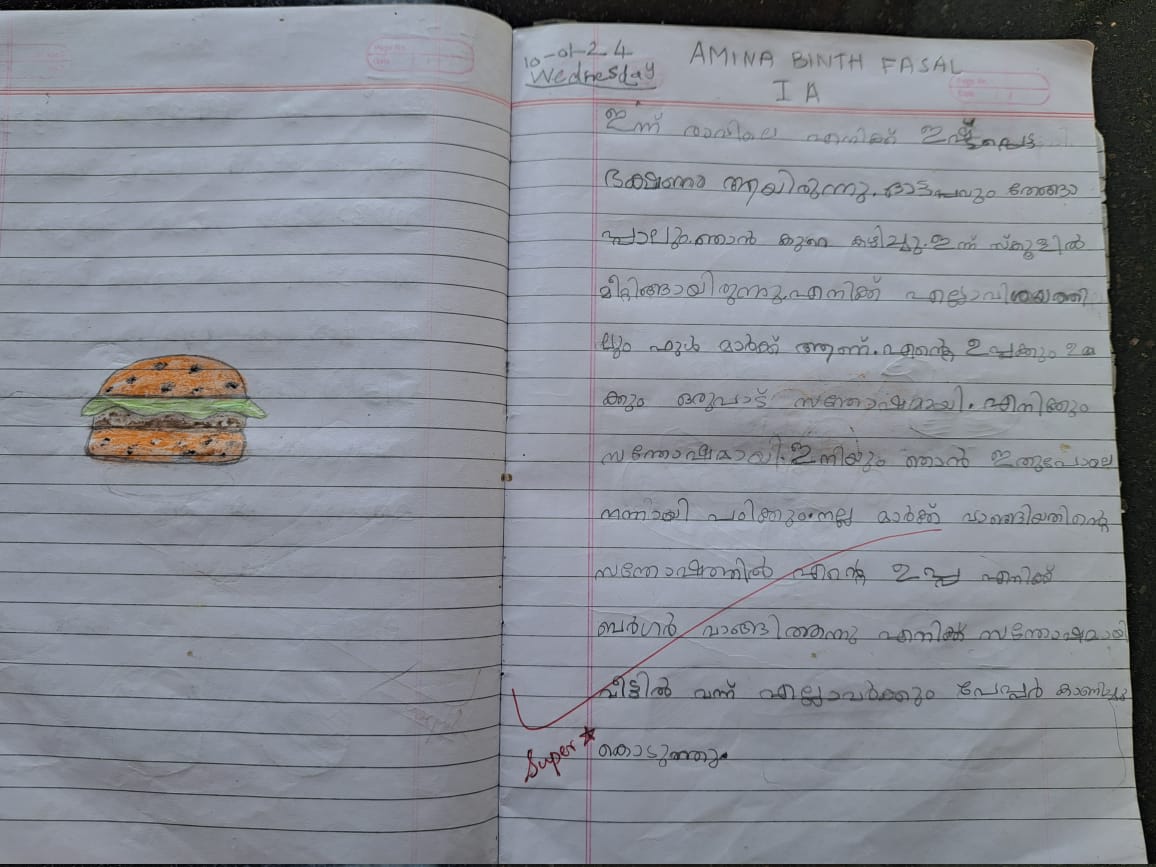 10-01-24
Wednesday
AMINA BINTH FASAL
I A
ഇന്ന് രാവിലെ എനിക്ക് ഇഷ്ട്ടപ്പെട്ട
ഭക്ഷണം ആയിരുന്നു. ഓട്ടപ്പവും തേങ്ങാ
പ്പാലും.ഞാൻ കുറെ കഴിച്ചു.ഇന്ന് സ്കൂളിൽ
മീറ്റിങ്ങായിരുന്നു.എനിക്ക് എല്ലാവിശയത്തി
ലും ഫുൾ മാർക്ക് ആണ്.എന്റെ ഉപ്പക്കും ഉമ്മ
ക്കും ഒരുപാട് സന്തോഷമായി. എനിക്കും
സന്തോഷമായി.ഇനിയും ഞാൻ ഇതുപോലെ
നന്നായി പഠിക്കും.നല്ല മാർക്ക് വാങ്ങിയതിന്റെ
സന്തോഷത്തിൽ എന്റെ ഉപ്പ എനിക്ക്
ബർഗർ വാങ്ങിത്തന്നു എനിക്ക് സന്തോഷമായി
വീട്ടിൽ വന്ന് എല്ലാവർക്കും പേപ്പർ കാണിച്ചു
കൊടുത്തു.
Super